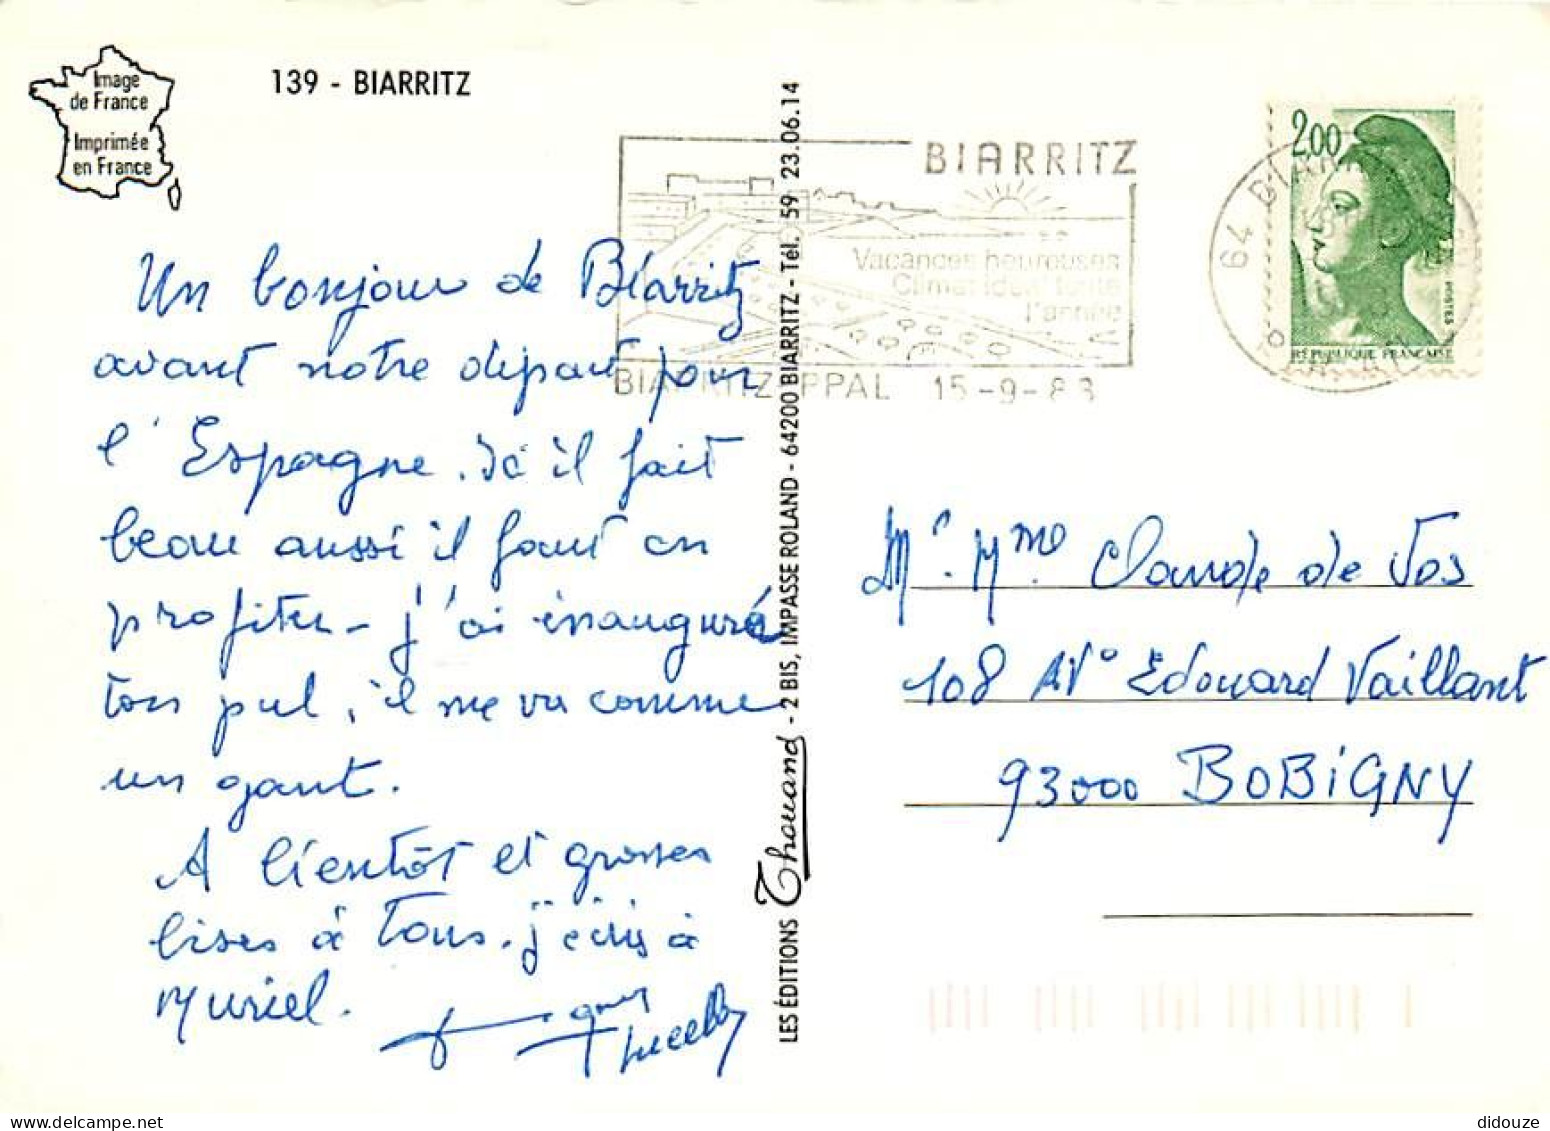 Image
de France
Imprimée
en France
139 - BIARRITZ
Un bonjour de Biarritz
avant notre départ pour
l'Espagne. Ici il fait
beau aussi il faut en
profiter - j'ai inauguré
ton pul, il me va comme
un gant.
A bientôt et grosses
bises à Tous. j'écris à
Muriel.
LES ÉDITIONS Thouand - 2 BIS, IMPASSE ROLAND - 64200 BIARRITZ - Tél. 59 23.06.14
BIARRITZ
Vacances heureuses
Climat idéal toute
l'année
BIARRITZ PPAL 15-9-83
64 BIARRITZ
2.00
POSTES
RÉPUBLIQUE FRANÇAISE
Mr. Mme. Claude de Vos
108 AVo Edouard Vaillant
93000 BOBIGNY
didouze